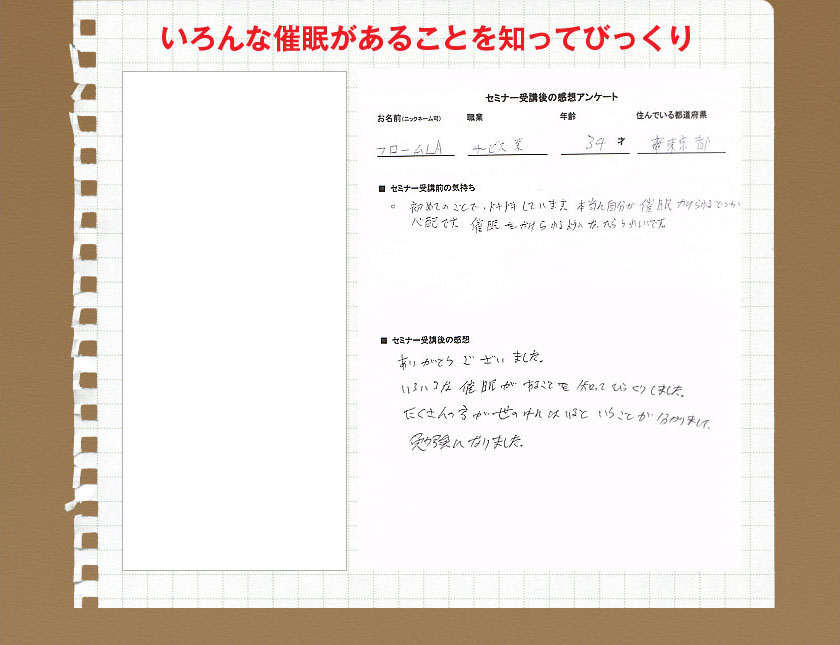 いろんな催眠があることを知ってびっくり
セミナー受講後の感想アンケート
お名前(ニックネーム可) 職業 年齢 住んでいる都道府県
フロームLA サービス業 34才 東京都
■ セミナー受講前の気持ち
。初めてのことで、ドキドキしています。本当に自分が催眠かけられるでっか
心配です。催眠をかけられる様になったらうれしいです。
■ セミナー受講後の感想
ありがとうございました。
いろいろな催眠があることを知ってびっくりしました。
たくさんの方が世の中にはいるということが分かりまして、
勉強になりました。